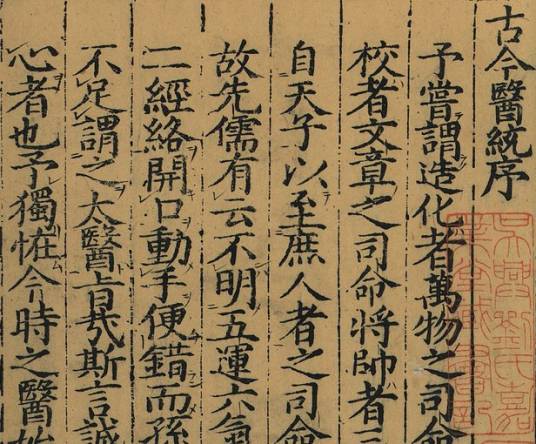 古今醫統序
予嘗謂造化者萬物之司命
校者文章之司命將帥者三
自天子以至庶人者之司命
故先儒有云不明五運六氣
二經絡開口動手便錯而孫
不足謂之太醫旨哉斯言誠
心者也予獨恠今時之醫始